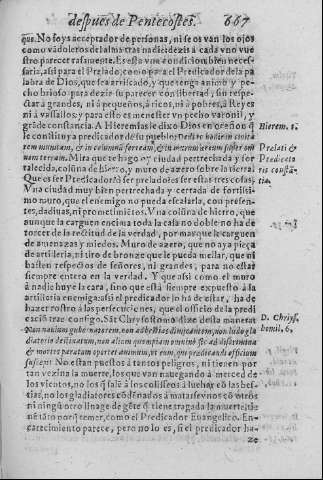 despues de Pentecostes. 667
que. No soys acceptador de personas, ni se os van los ojos
como vadoleros de la sma tras nadie: dezis a cada vno vue
stro parecer rasamente. Es esta vna condicion bien neces-
saria, assi para el Prelado, como para el Predicador de la pa
labra de Dios, que sea arriscado, y que tenga animo y pe-
cho brioso para dezir su parecer con libertad, sin respe-
ctar a grandes, ni a pequeños, a ricos, ni a pobres, a Reyes
ni a vassallos: y para esto es menester vn pecho varonil, y
grãde constancia. A Hieremias le dixo Dios en oceñon q̃
le constituya predicador de su pueblo:
nam terram. Mira que te hago oy ciudad pertrechada y for
talecida, colũna de hierro, y muro de azero sobre la tierra.
Que es ser Predicador? a ser prelado? es ser estas tres cosas.
Vna ciudad muy bien pertrechada y cerrada de fortissi-
mo muro, que el enemigo no pueda escalarla, con presen-
tes, dadiuas, ni prometimientos. Vna colũna de hierro, que
aunque la carguen encima toda la casa no doble: no ha de
torcer de la rectitud de la verdad, por mas que le carguen
de amenazas y miedos. Muro de azero, que no aya pieça
de artilleria, ni tiro de bronze que le pueda mellar, que ni
basten respectos de señores, ni grandes, para no estar
siempre entero en la verdad. Y que assi como el muro
a nadie huye la cara, sino que està siempre expuesto à la
artilleria enemiga: assi el predicador lo ha de estar, ha de
hazer rostro à las persecuciones, que el officio de la predi
caciõ trae consigo. Sãt Chrysostomo dize desta manera:
Non nauium gubernatorem, non ad bestias dimicantem, non ludo gla
diatorio destinatum, non alium quempiam omninò sic ad discrimina
& mortes paratam oportet animum, vt eum, qui prædicandi officium
suscepit. No estan puestos à tantos peligros, ni tienen por
tan vezina la muerte, los que van nauegando à merced de
los vientos, no los q̃ salẽ à los colisseos à luchar cõ las bes-
tias, no los gladiatores cõdenados à matarse vnos cõ otros
ni ningũ otro linage de gẽte q̃ tiene tragada la muerte, tie
nẽ tãto porq̃ temer, como el Predicador Euangelico. En-
carecimiento parece, pero no lo es, si el predicador ha-
ze
Hierem. 1.
Prelati &
Predicato
res constã-
tia.
D. Chrys.
homil. 6.